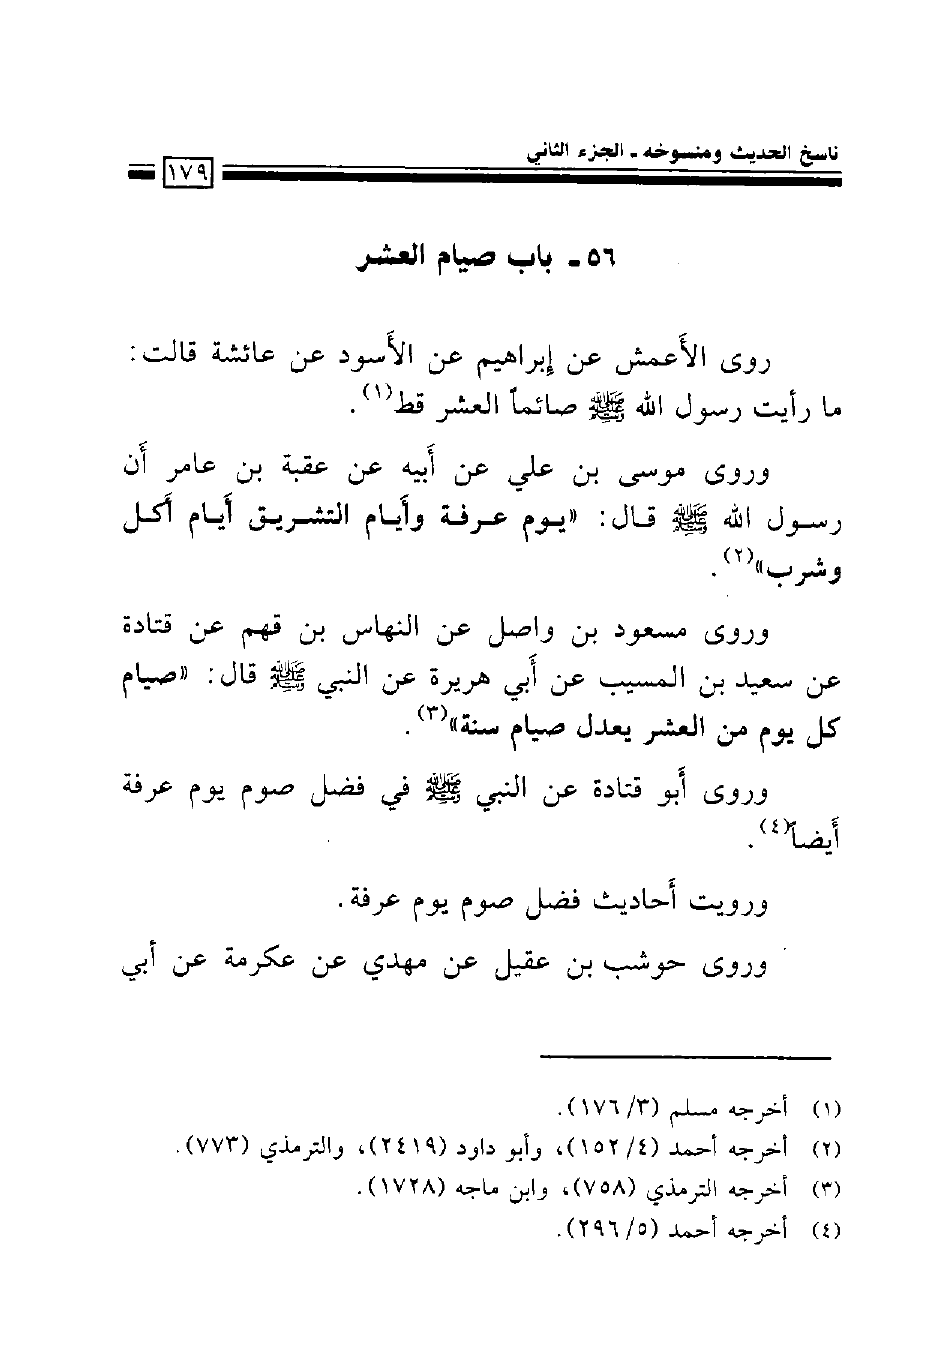 ناسخ الحديث ومنسوخه ـ الجزء الثاني
١٧٩
٥٦ ـ باب صيام العشر
روى الأَعمش عن إبراهيم عن الأَسود عن عائشة قالت:
ما رأيت رسول الله ﷺ صائماً العشر قط(١).
وروى موسى بن علي عن أَبيه عن عقبة بن عامر أَن
رسول الله ﷺ قال: «يوم عرفة وأَيام التشريق أَيام أَكل
وشرب»(٢).
وروى مسعود بن واصل عن النهاس بن قهم عن قتادة
عن سعيد بن المسيب عن أَبي هريرة عن النبي ﷺ قال: «صيام
كل يوم من العشر يعدل صيام سنة»(٣).
وروى أَبو قتادة عن النبي ﷺ في فضل صوم يوم عرفة
أَيضاً(٤).
ورويت أَحاديث فضل صوم يوم عرفة.
وروى حوشب بن عقيل عن مهدي عن عكرمة عن أَبي
(١) أخرجه مسلم (٣/ ١٧٦).
(٢) أخرجه أحمد (٤/ ١٥٢)، وأبو داود (٢٤١٩)، والترمذي (٧٧٣).
(٣) أخرجه الترمذي (٧٥٨)، وابن ماجه (١٧٢٨).
(٤) أخرجه أحمد (٥/ ٢٩٦).